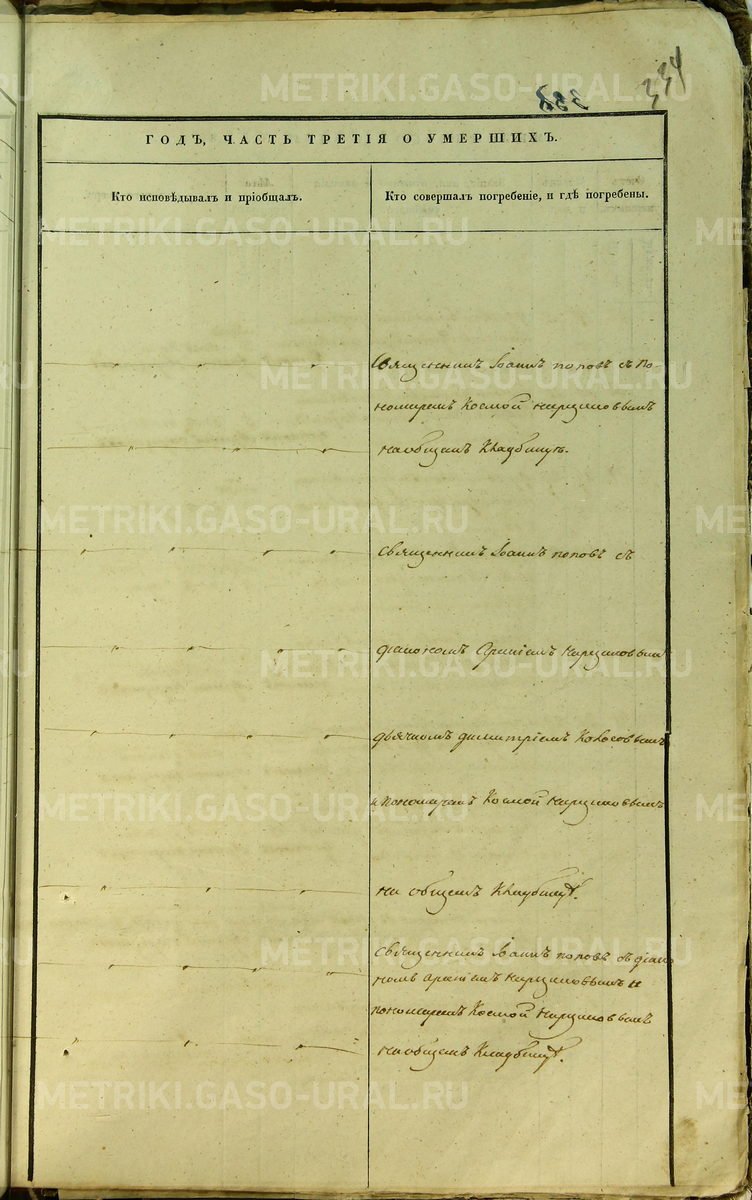 334
ГОДЪ, ЧАСТЬ ТРЕТІЯ О УМЕРШИХЪ.
Кто исповѣдывалъ и пріобщалъ.
Кто совершалъ погребеніе, и гдѣ погребены.
Священникъ Іоаннъ поповъ съ По-
номаремъ Космой
на общемъ Кладбищѣ.
Священникъ Іоаннъ поповъ съ
діакономъ
дьячкомъ димитріемъ Колосовымъ
и пономаремъ Космой
на общемъ Кладбищѣ.
Священникъ Іоаннъ поповъ съ діако
номъ
пономаремъ Космой
на общемъ Кладбищѣ.
METRIKI.GASO-URAL.RU